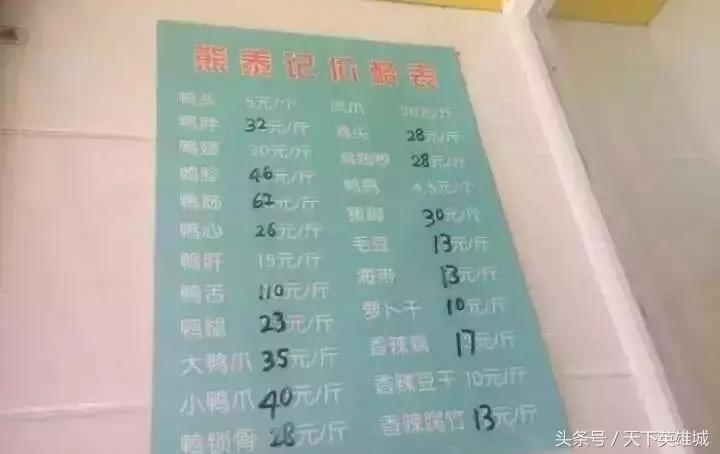 熊泰记价格表
鸭头 5元/个
鸭脖 32元/斤
鸭翅 30元/斤
鸭胗 46元/斤
鸭肠 62元/斤
鸭心 26元/斤
鸭肝 15元/斤
鸭舌 110元/斤
鸭腿 23元/斤
大鸭爪 35元/斤
小鸭爪 40元/斤
鸭锁骨 28元/斤
凤爪 元/斤
28元/斤
28元/斤
4.5元/个
猪脚 30元/斤
毛豆 13元/斤
海带 13元/斤
萝卜干 10元/斤
香辣藕 17元/斤
香辣豆干 10元/斤
香辣腐竹 13元/斤
头条号 / 天下英雄城